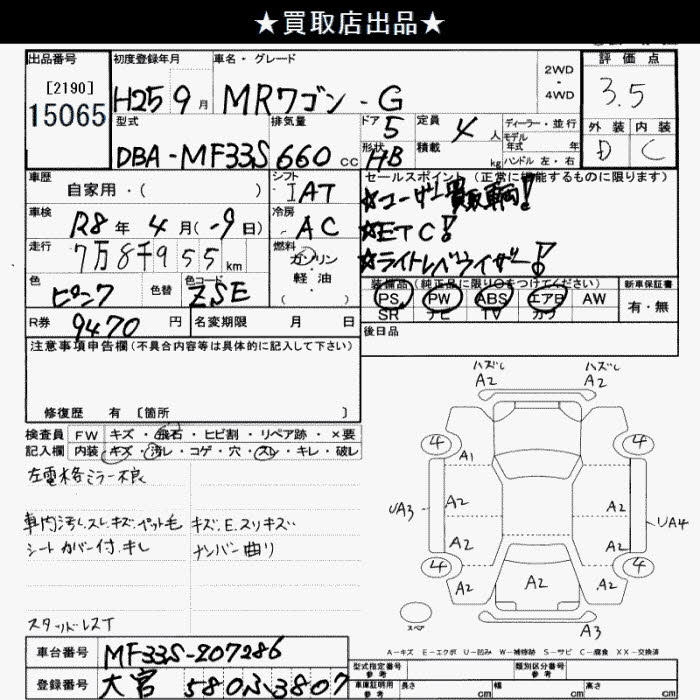 ★買取店出品★
出品番号 初度登録年月 車名・グレード 2WD・4WD 評価点
[2190] 15065 H25 9月 MRワゴン - G 3.5
型式 排気量 ドア 5 定員 4人 ディーラー・並行 外装 内装
モデル年式 年
DBA-MF33S 660cc 形状 HB 積載 kg ハンドル 左・右 D C
車歴 シフト セールスポイント (正常に機能するものに限ります)
自家用・( ) IAT ☆ユーザー買取車両!
車検 冷房 ☆ETC!
R8年4月(-9日) AC ☆ライトレベライザー!
走行 燃料
7万8千955km ガソリン
軽油
( )
色 色替 色コード 装備品(純正品に限り○をつけてください) 新車保証書
ピンク ZSE PS PW ABS エアB AW 有・無
SR ナビ TV カワ
R券 9470円 名変期限 月 日 後日品
注意事項申告欄(不具合内容等は具体的に記入して下さい)
修復歴 有 〔箇所 〕
検査員 FW キズ・飛石・ヒビ割・リペア跡・×要
記入欄 内装 キズ・汚レ・コゲ・穴・スレ・キレ・破レ
左電格ミラー不良
車内汚レ.スレ.キズ.ペット毛 キズ.E.スリキズ
シートカバー付.キレ ナンバー曲り
スタッドレスT
ハズレ ハズレ
A2 A2
4 4
A1
UA3 A2 A2 UA4
A2 A2
4 4
A2 A2 A2
スペア
A3
A-キズ E-エクボ U-凹み W-補修跡 S-サビ C-腐食 XX-交換済
車台番号 MF33S-207286
登録番号 大宮 580ふ3807
型式指定番号 参考 類別区分番号 参考
車庫証明用 参考 長さ cm 幅 cm 高さ cm